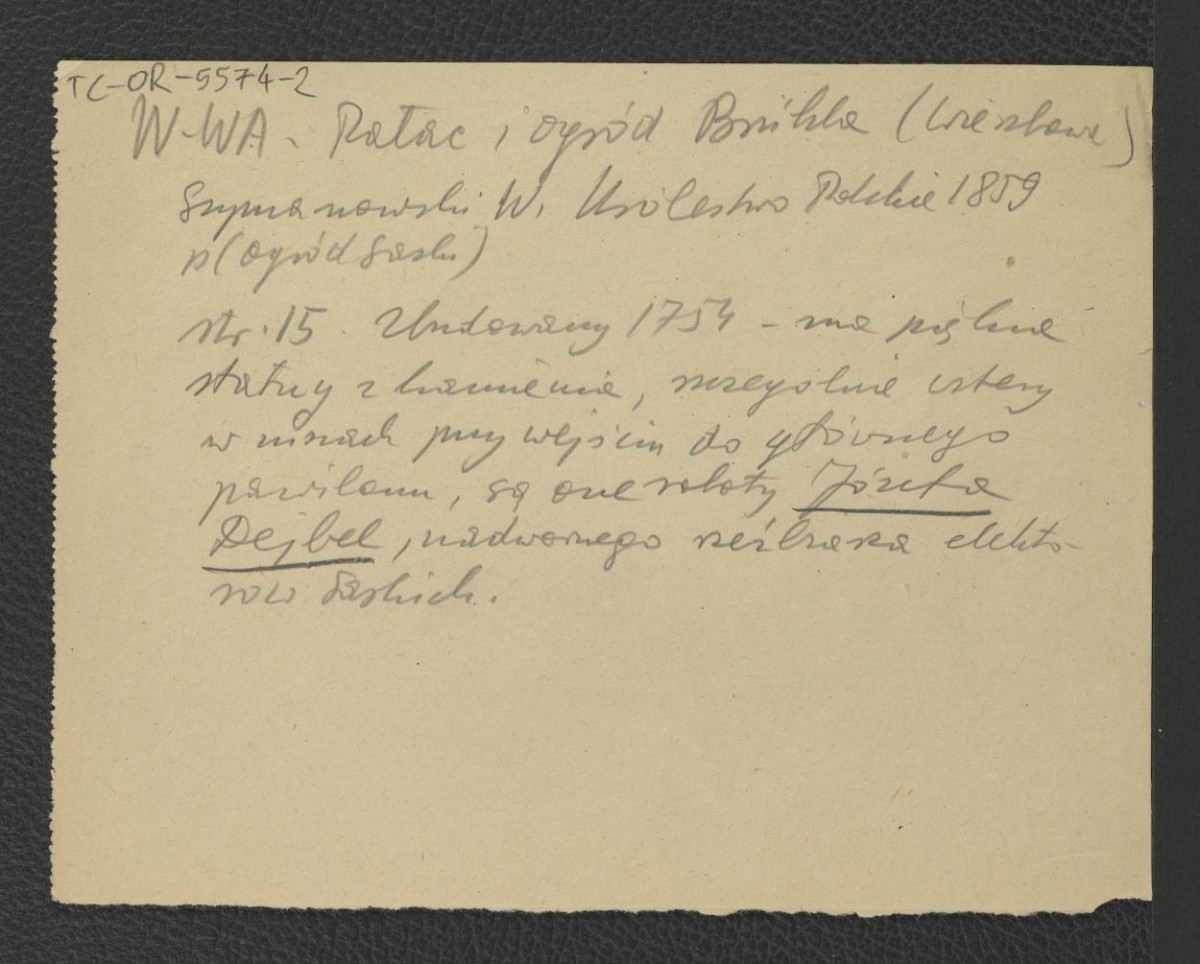 TC-OR-5574-2
W-WA. Pałac i ogród Brühla (Wierzbowa)
Szymanowski W. Królestwo Polskie 1859
p(ogród Saski)
str. 15. Zbudowany 1754 - ma piękne
statuy z kamienia, szczególnie cztery
w niszach przy wejściu do głównego
pawilonu, są one roboty Józefa
Dejbel, nadwornego rzeźbiarza elekto-
rów Saskich.